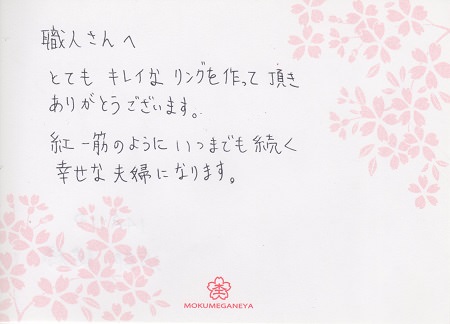 職人さんへ
とても キレイな リングを作って 頂き
ありがとうございます。
紅一筋のように いつまでも続く
幸せな 夫婦になります。
MOKUMEGANEYA